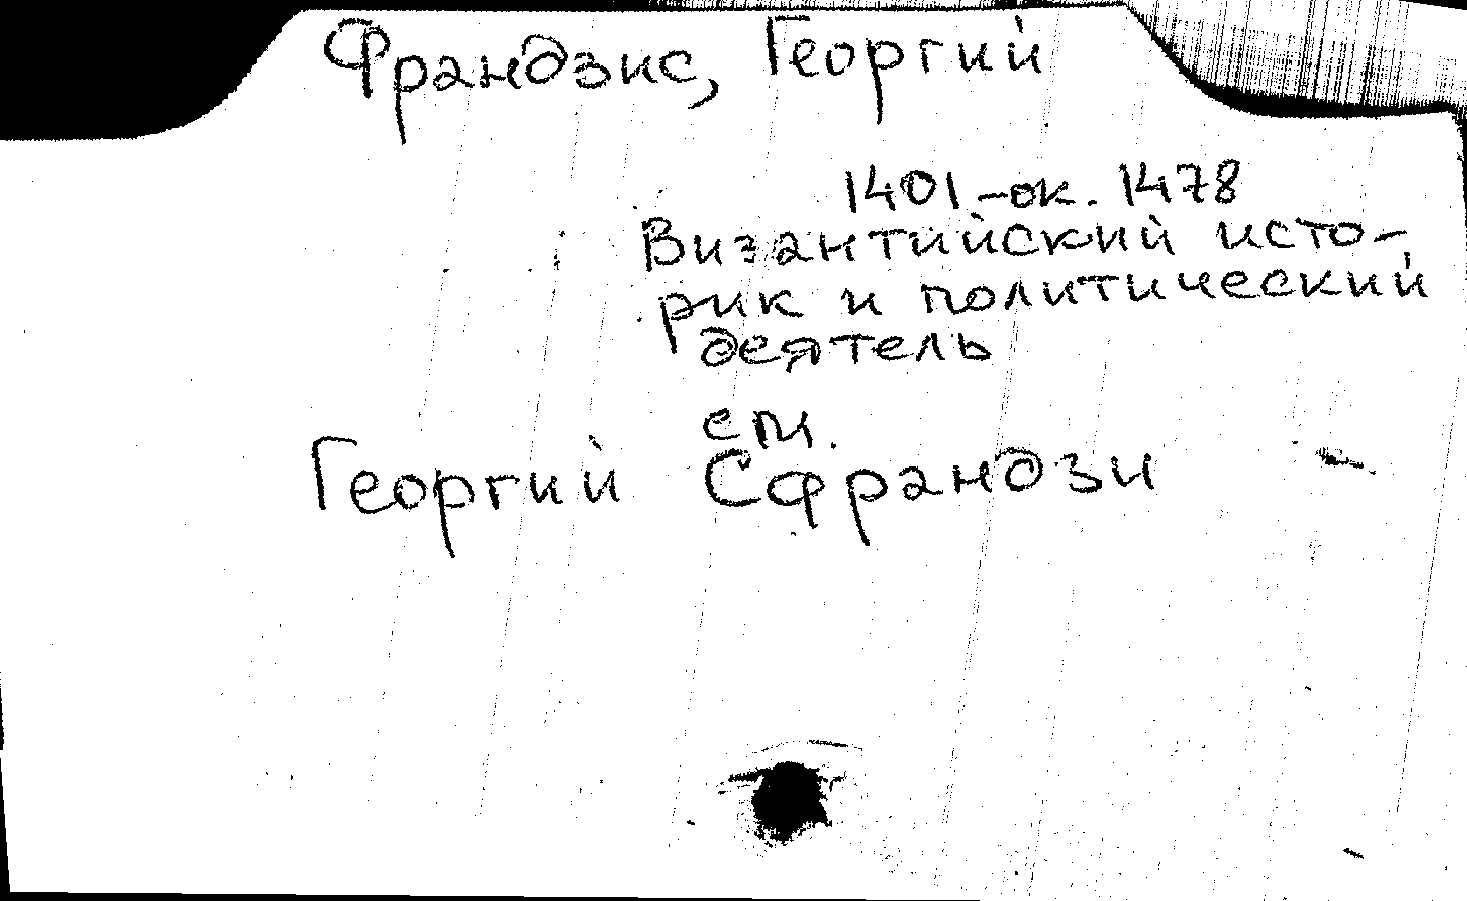 Франдзис, Георгий
1401 – ок. 1478
Византийский исто-
рик и политический
деятель
см.
Георгий Сфрандзи